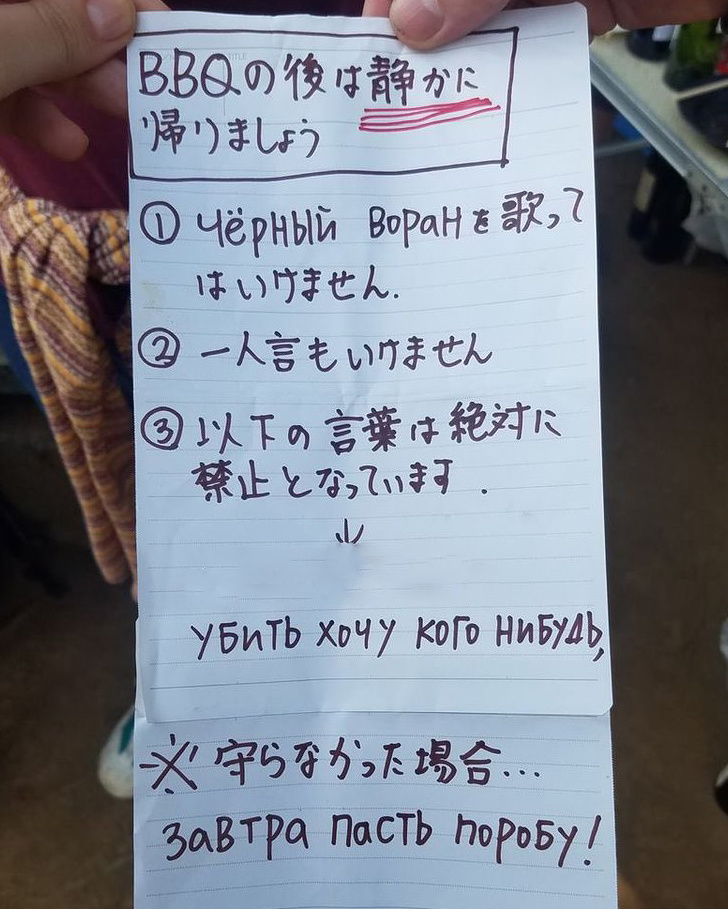 BBQの後は静かに
帰りましょう
① Чёрный воранを歌って
はいけません.
② 一人言もいけません
③ 以下の言葉は絶対に
禁止となっています.
↓
убить хочу кого нибудь,
※ 守らなかった場合...
завтра пасть поробу!